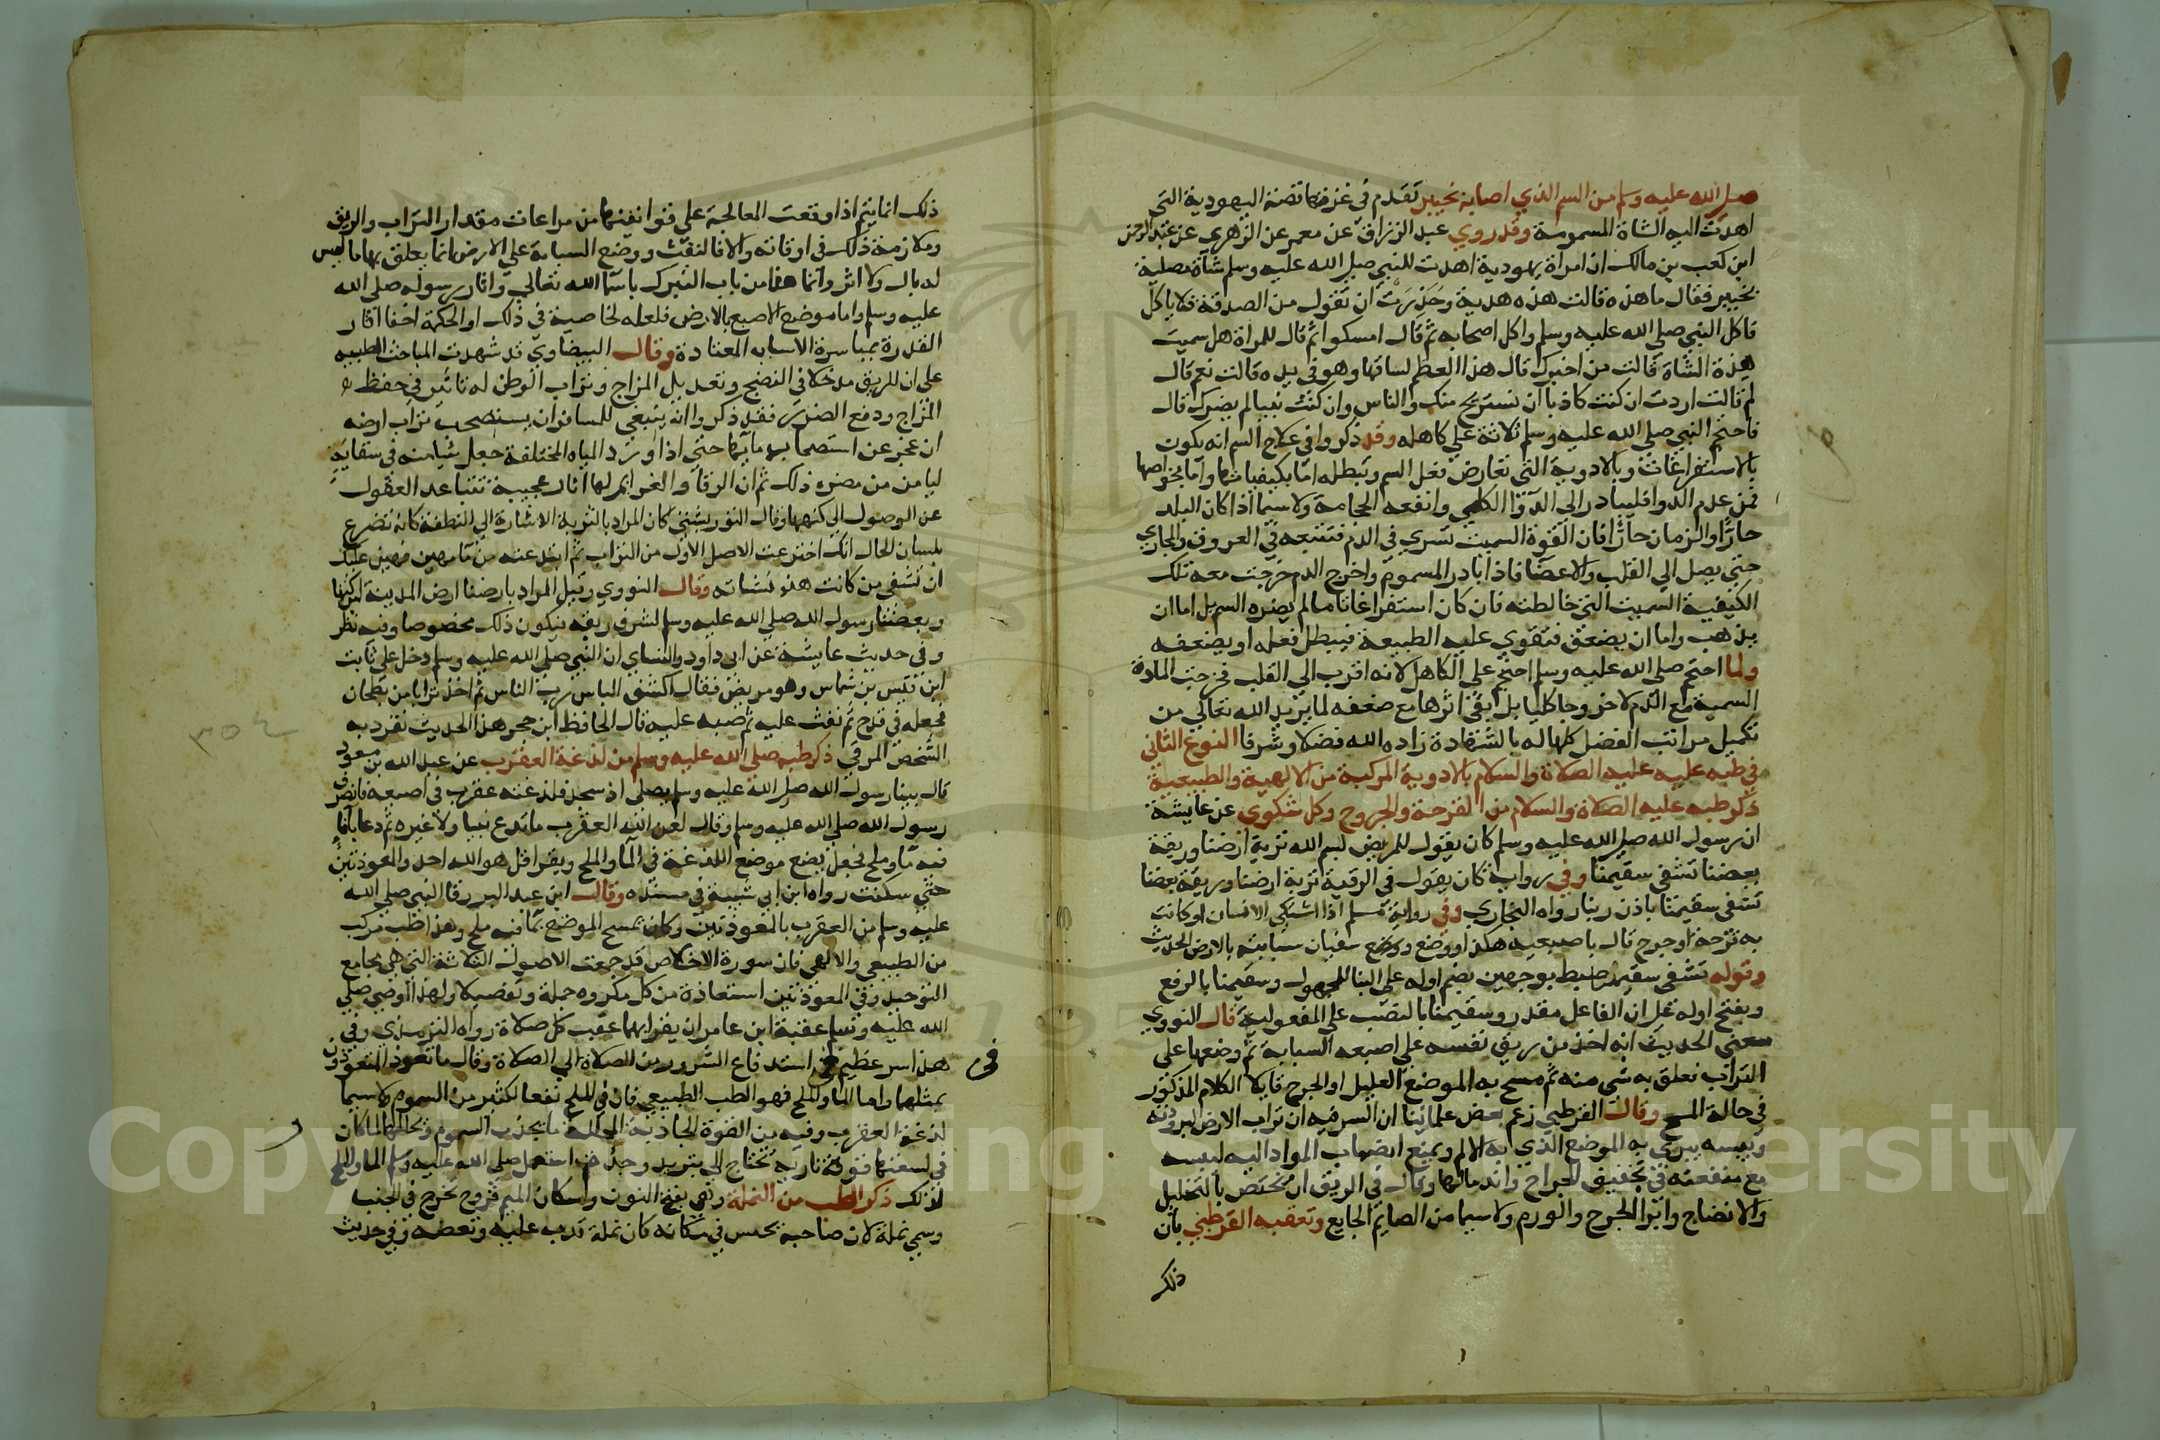 صلى الله عليه وسلم من السم الذي اصابه بخيبر تقدم في غزوتها قصة اليهودية التي
اهدت اليه الشاة المسمومة وقد روي عبد الرزاق عن معمر عن الزهري عن عبد الرحمن
ابن كعب بن مالك ان امراة يهودية اهدت للنبي صلى الله عليه وسلم شاة مصلية
بخيبر فقال ما هذه قالت هذه هدية وحذرت ان تقول من الصدقة فلا ياكل
فاكل النبي صلى الله عليه وسلم واكل اصحابه ثم قال امسكوا ثم قال للمراة هل سميت
هذه الشاة قالت من اخبرك قال هذا العظم لساقها وهو في يده قالت نعم قال
لم قالت اردت ان كنت كاذبا ان نستريح منك والناس وان كنت نبيا لم يضرك قال
فاحتجم النبي صلى الله عليه وسلم ثلاثة على كاهله وقد ذكروا في علاج السم انه يكون
بالاستفراغات وبالادوية التي تعارض فعل السم وتبطله اما بكيفياتها واما بخواصها
فمن عدم الدوا فليبادر الى الدوا الكلي وانفعه الحجامة ولا سيما اذا كان البلد
حارا والزمان حارا فان القوة السمية تسري في الدم فتتبعه في العروق والمجاري
حتى يصل الي القلب والاعضا فاذا بادر المسموم واخرج الدم خرجت معه تلك
الكيفية السمية التي خالطته فان كان استفراغا تاما لم يضره السم بل اما ان
يذهب واما ان يضعف فتقوي عليه الطبيعة فيبطل فعله او يضعفه
ولما احتجم صلى الله عليه وسلم احتجم على الكاهل لانه اقرب الى القلب فخرجت المادة
السمية مع الدم لا خروجا كليا بل ابقى اثرها مع ضعفه لما يريد الله تعالى من
تكميل مراتب الفضل كلها له بالشهادة زاده الله فضلا وشرفا النوع الثاني
في طبه عليه عليه الصلاة والسلام بالادوية المركبة من الالهية والطبيعية
ذكر طبه عليه الصلاة والسلام من القرحة والجروح وكل شكوي عن عايشة
ان رسول الله صلى الله عليه وسلم كان يقول للمريض بسم الله تربة ارضنا وريقة
بعضنا تشفي سقيمنا وفي رواية كان يقول في الرقية تربة ارضنا وريقة بعضنا
تشفي سقيمنا باذن ربنا رواه البخاري وفي رواية مسلم اذا اشتكي الانسان او كانت
به قرحة او جرح قال باصبعه هكذا ووضع سفيان سبابته بالارض الحديث
وقوله تشفي سقيمنا ضبط بوجهين بضم اوله على البنا للمجهول وسقيمنا بالرفع
وبفتح اوله على ان الفاعل مقدر وسقيمنا بالنصب على المفعولية قال النووي
معني الحديث انه اخذ من ريق نفسه على اصبعه السبابة ثم وضعها على
التراب فعلق به شي منه ثم مسح به الموضع العليل او الجرح قايلا الكلام المذكور
في حالة المسح وقال القرطبي زعم بعض علمائنا ان السر فيه ان تراب الارض لبرودته
ويبسه يبري به الموضع الذي به الالم ويمنع انصباب المواد اليه ليبسه
مع منفعته في تجفيف الجراح واندمالها وقال في الريق انه يختص بالتحليل
والانضاج وابرا الجرح والورم ولا سيما من الصايم الجايع وتعقبه القرطبي بان
ذلك
ذلك انما يتم اذا وقعت المعالجة على قوانينها من مراعات مقدار التراب والريق
وملازمة ذلك في اوقاته والا فالنفث ووضع السبابة على الارض انما يعلق بها ما ليس
له بال ولا اثر وانما هذا من باب التبرك باسما الله تعالى واثار رسوله صلى الله
عليه وسلم واما موضع الاصبع بالارض فلعله لخاصية في ذلك او الحكمة اخفا اثار
القدرة بمباسرة الاسباب المعتادة وقال البيضاوي قد شهدت المباحث الطبيه
على ان للريق مدخلا في النضج وتعديل المزاج وتراب الوطن له تاثير في حفظ
المزاج ودفع الضرر فقد ذكروا انه ينبغي للمسافر ان يستصحب تراب ارضه
ان عجز عن استصحاب مايها حتى اذا ورد المياه المختلفة جعل شيا منه في سقايه
ليامن من مضرة ذلك ثم ان الرقا والعزايم لها اثار عجيبة تتقاعد العقول
عن الوصول الي كنهها وقال التوربشتي كان المراد بالتربة الاشارة الي النطفة كانه تضرع
بلسان الحال انك اخترعت الاصل الاول من التراب ثم ابتدعته من ما مهين فهين عليك
ان تشفي من كانت هذه نشاته وقال النووي وقيل المراد بارضنا ارض المدينة لبركتها
وبعضنا رسول الله صلى الله عليه وسلم لشرف ريقه فيكون ذلك مخصوصا وفيه نظر
وفي حديث عايشة عن ابي داود والنساي ان النبي صلى الله عليه وسلم دخل على ثابت
ابن قيس بن شماس وهو مريض فقال اكشف الباس رب الناس ثم اخذ ترابا من بطحان
فجعله في قدح ثم نفث عليه ثم صبه عليه قال الحافظ ابن حجر هذا الحديث تفرد به
الشخص المرقي ذكر طبه صلى الله عليه وسلم من لدغة العقرب عن عبد الله بن مسعود
قال بينا رسول الله صلى الله عليه وسلم يصلي اذ سجد فلدغته عقرب في اصبعه فانصرف
رسول الله صلى الله عليه وسلم وقال لعن الله العقرب ما تدع نبيا ولا غيره ثم دعا بانا
فيه ما وملح فجعل يضع موضع اللدغة في الما والملح ويقرا قل هو الله احد والمعوذتين
حتى سكنت رواه ابن ابي شيبة في مسنده وقال ابن عبد البر رقا النبي صلى الله
عليه وسلم من العقرب بالمعوذتين وكان يمسح الموضع بما فيه ملح وهذا طب مركب
من الطبيعي والالهي فان سورة الاخلاص قد جمعت الاصول الثلاثة التي هي مجامع
التوحيد وفي المعوذتين استعاذة من كل مكروه جملة وتفصيلا ولهذا اوصي صلى
الله عليه وسلم عقبة ابن عامر ان يقرا بهما عقب كل صلاة رواه الترمذي وفي
هذا سر عظيم في استدفاع الشرور من الصلاة الي الصلاة وقال ما تعوذ المتعوذون
في
بمثلها واما الما والملح فهو الطب الطبيعي فان في الملح نفعا لكثير من السموم ولا سيما
لدغة العقرب وفيه من القوة الجاذبة المحللة ما يجذب السموم ويحللها لما كان
في لسعتها قوة نارية تحتاج الي تبريد وجذب استعمل صلى الله عليه وسلم الما والملح
لذلك ذكر الطب من النملة وهي بفتح النون واسكان الميم قروح تخرج في الجنب
وسمي نملة لان صاحبه يحس في مكانه كان نملة تدب عليه وتعضه وفي حديث
٣٠٤